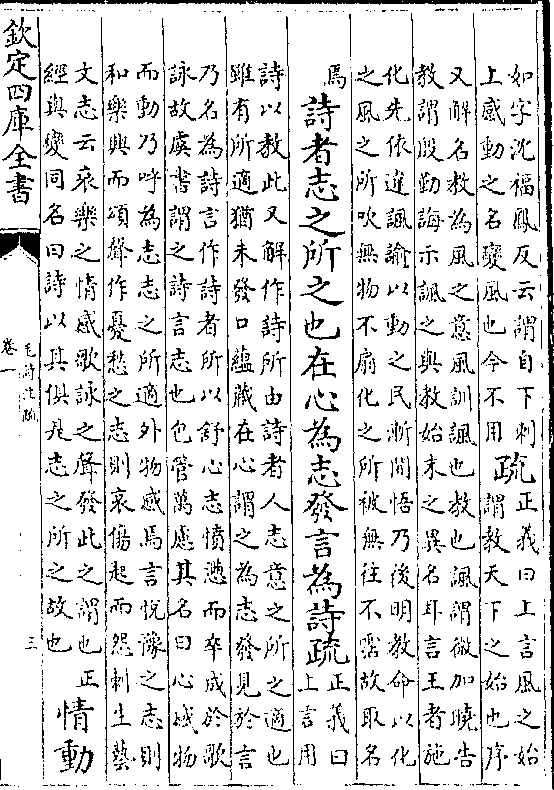 如字沈福鳳反云謂自下刺
上感動之名變風也今不用
疏
正義曰上言風之始
謂教天下之始也序
又解名教為風之意風訓諷也教也諷謂微加曉告
教謂殷勤誨示諷之與教始末之異名耳言王者施
化先依違諷諭以動之民漸開悟乃後明教命以化
之風之所吹無物不扇化之所被無往不霑故取名
焉
詩者志之所之也在心為志發言為詩疏
正義曰
上言用
詩以教此又解作詩所由詩者人志意之所之適也
雖有所適猶未發口蘊藏在心謂之為志發見於言
乃名為詩言作詩者所以舒心志憤懣而卒成於歌
詠故虞書謂之詩言志也包管萬慮其名曰心感物
而動乃呼為志志之所適外物感焉言悅豫之志則
和樂興而頌聲作憂愁之志則哀傷起而怨刺生藝
文志云哀樂之情感歌詠之聲發此之謂也正
經與變同名曰詩以其俱是志之所之故也
情動
欽定四庫全書
毛詩注疏
卷一
三